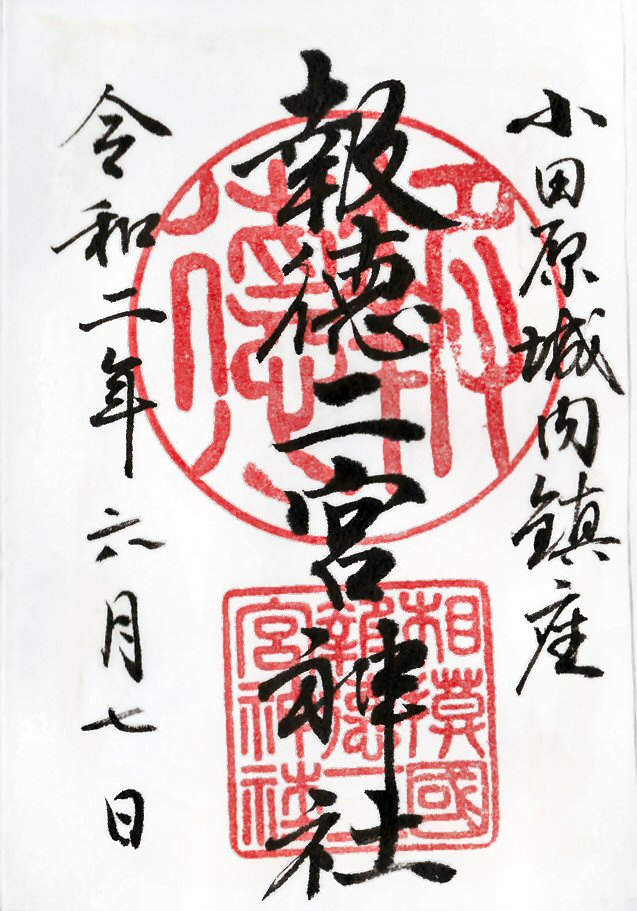 小田原城内鎮座
報徳二宮神社
令和二年六月七日
報徳
相模國
報徳二
宮神社